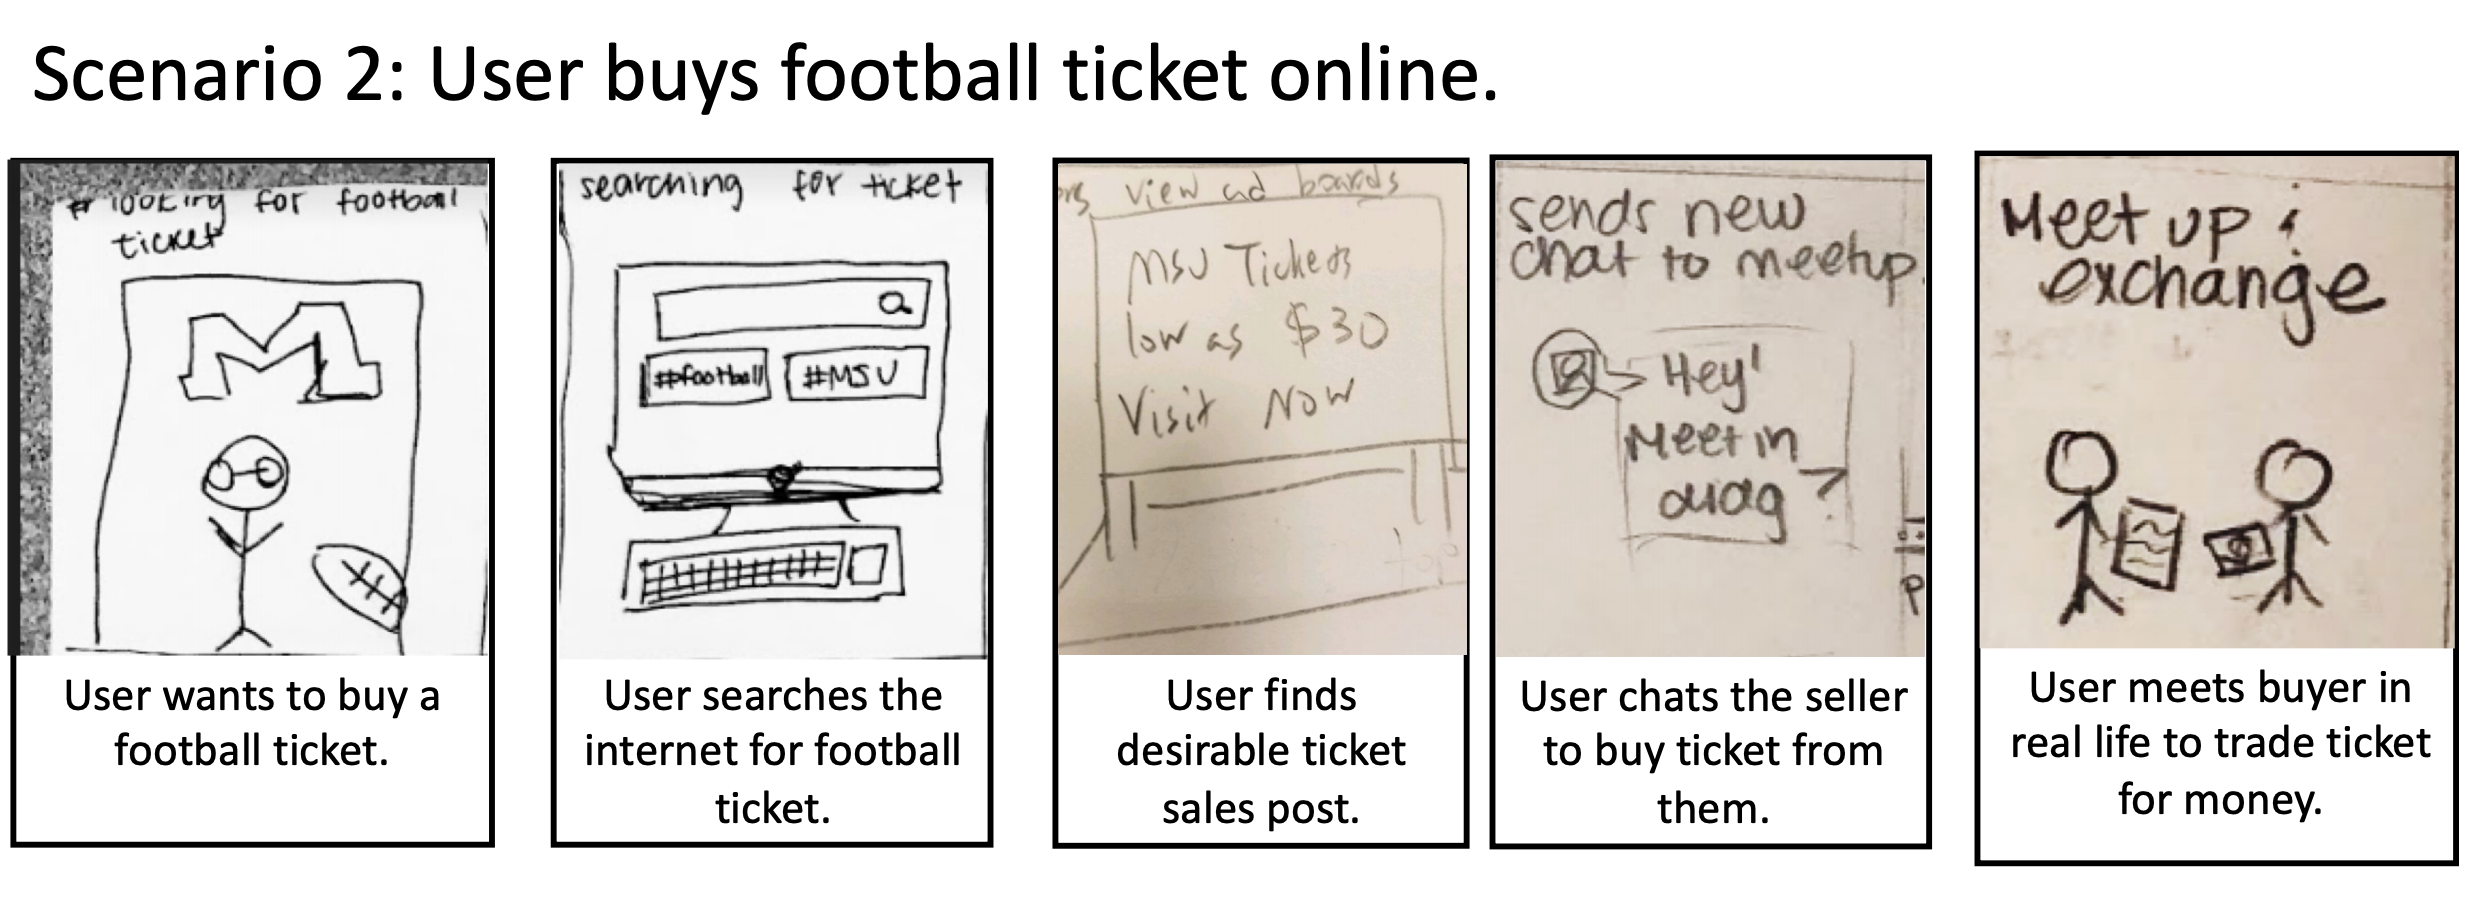 Scenario 2: User buys football ticket online.
# looking for football
ticket
M
User wants to buy a
football ticket.
searching for ticket
#football #MSU
User searches the
internet for football
ticket.
view ad boards
MSU Tickets
low as $30
Visit Now
User finds
desirable ticket
sales post.
sends new
chat to meetup.
Hey!
Meet in
quag?
P
User chats the seller
to buy ticket from
them.
Meet up &
exchange
User meets buyer in
real life to trade ticket
for money.